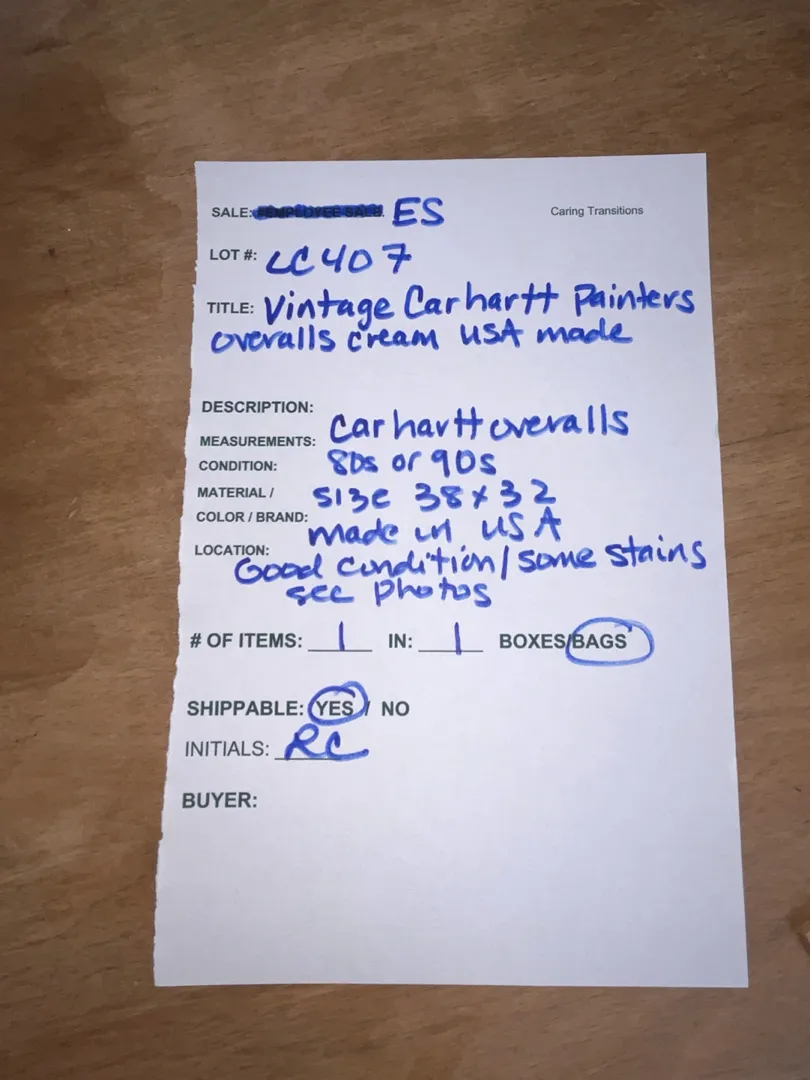 SALE: EMPLOYEE SALE. ES
Caring Transitions
LOT #: LC407
TITLE: Vintage Carhartt Painters
overalls cream USA made
DESCRIPTION:
MEASUREMENTS: Carhartt overalls
CONDITION: 80s or 90s
MATERIAL / size 38x32
COLOR / BRAND: made in USA
LOCATION:
Good condition/some stains
see photos
# OF ITEMS: 1 IN: 1 BOXES/BAGS
SHIPPABLE: YES / NO
INITIALS: RC
BUYER: